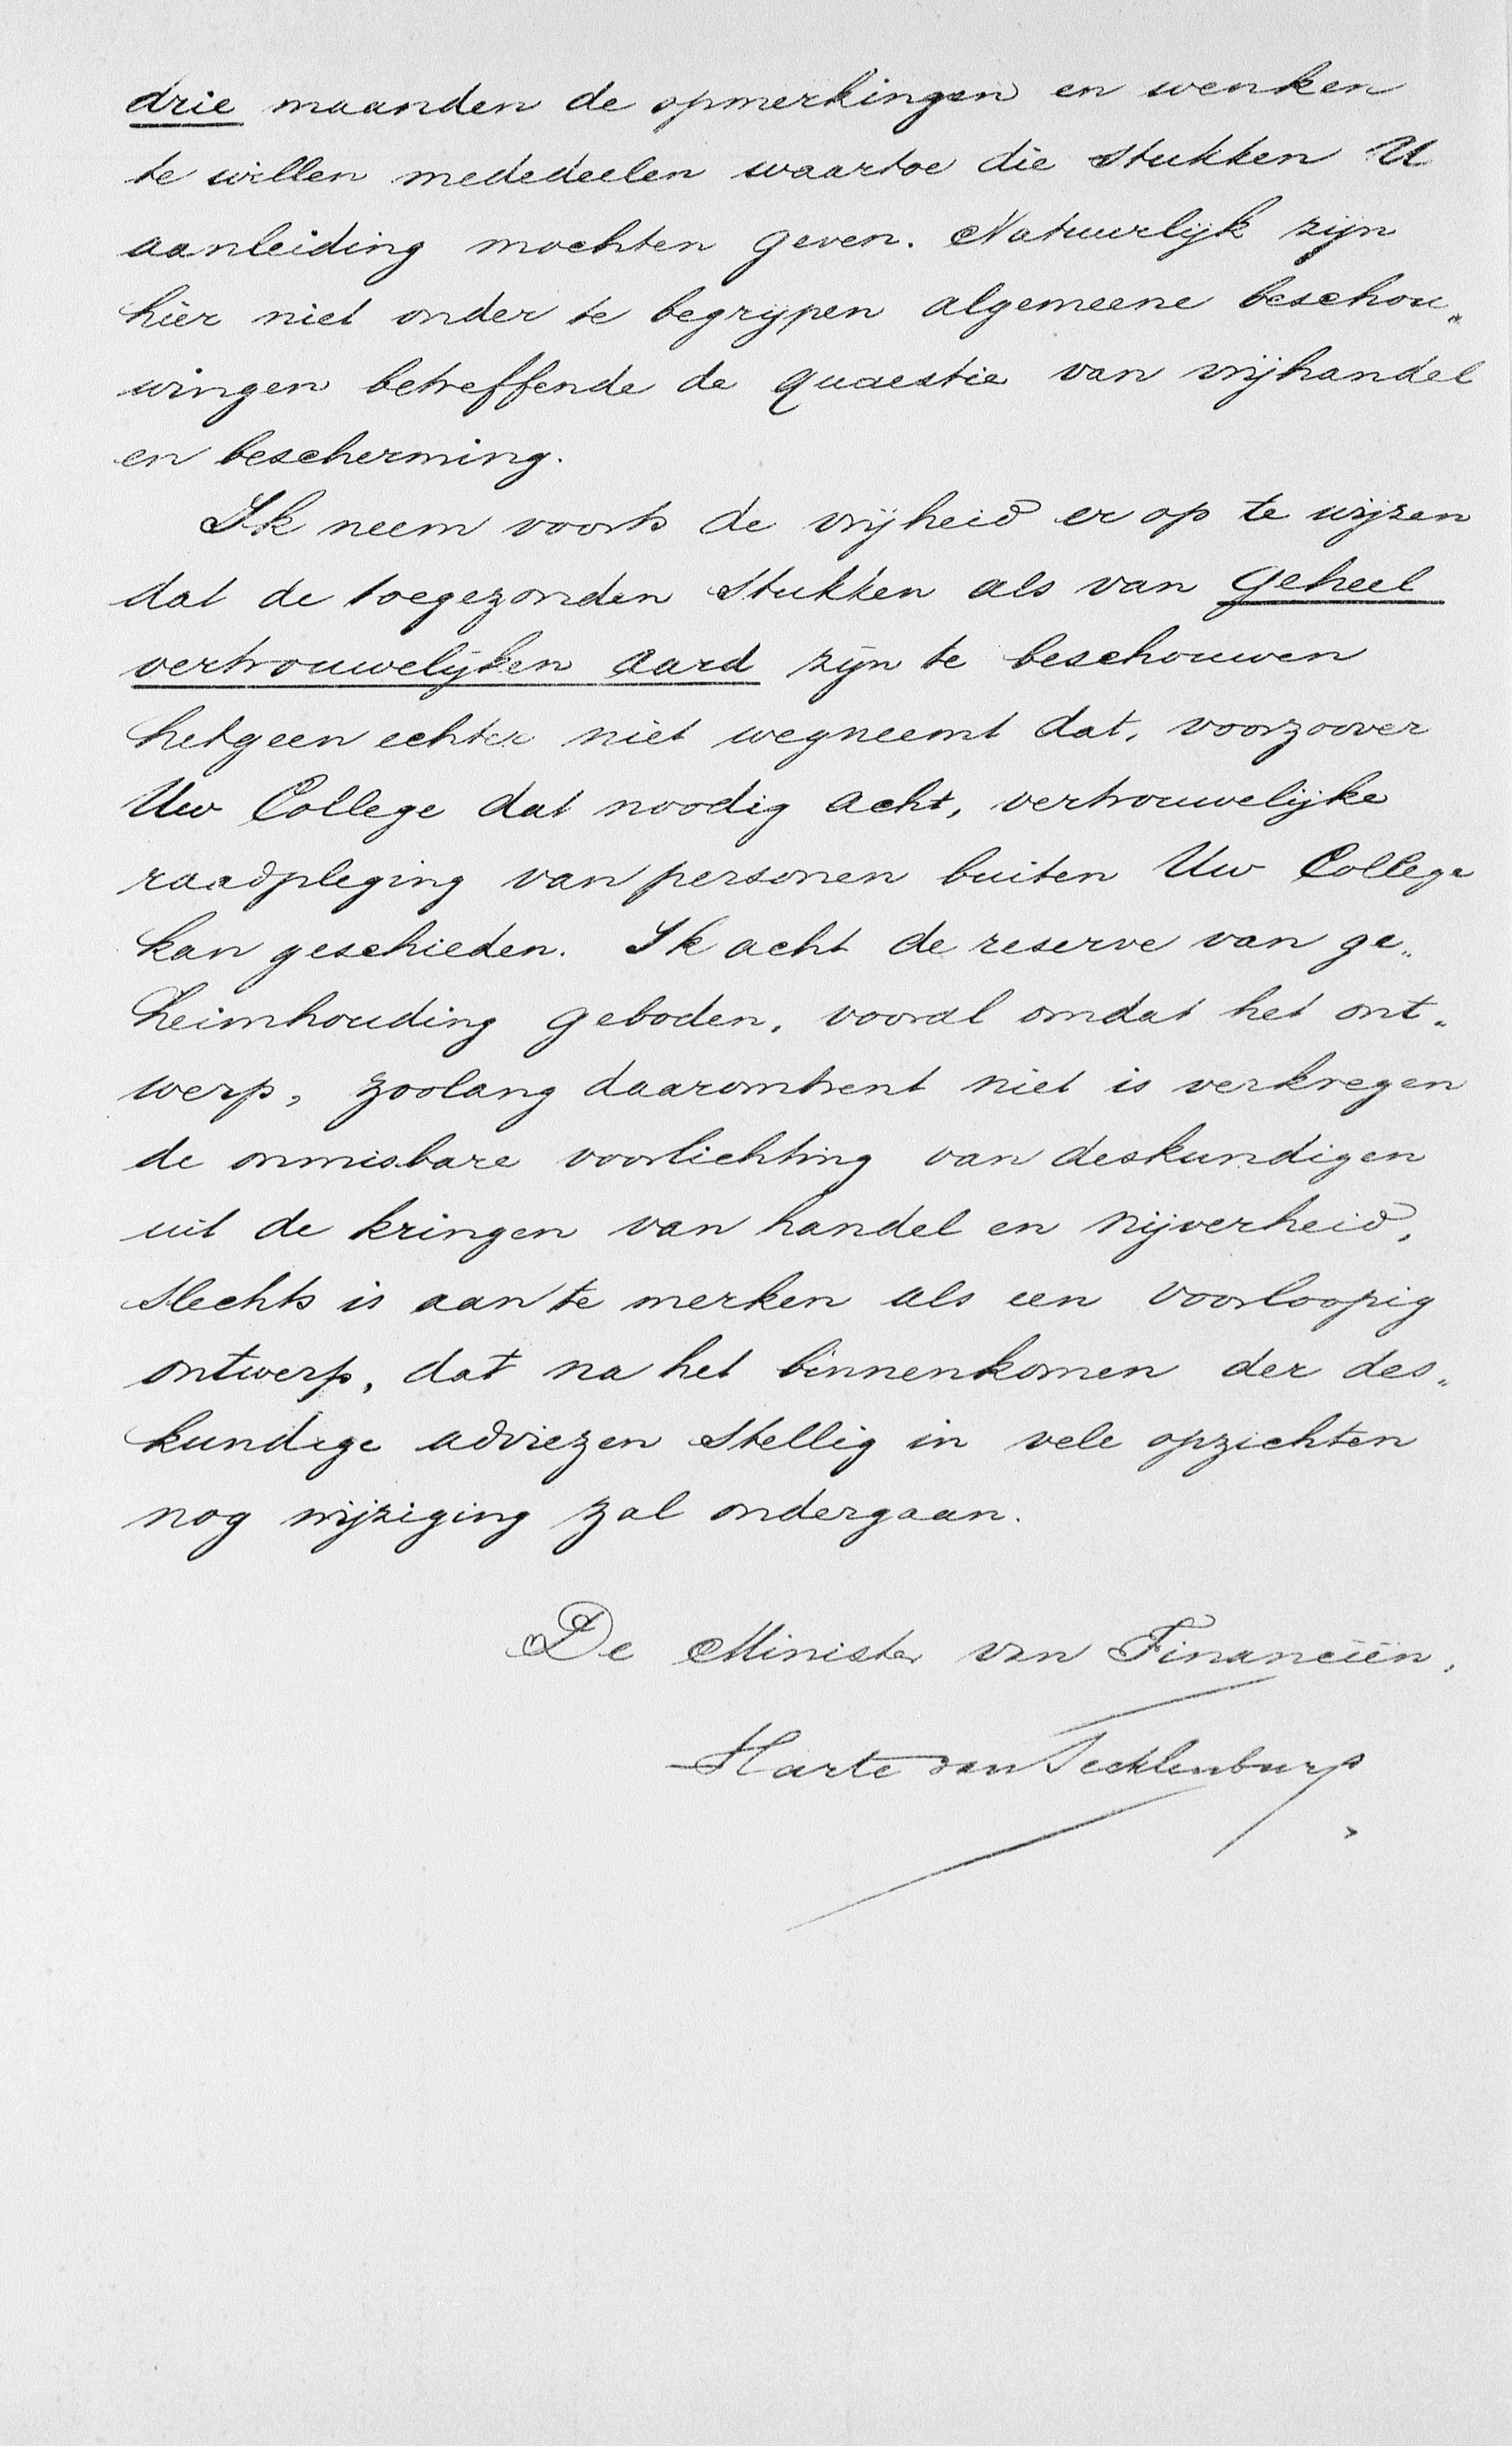 drie maanden de opmerkingen en wenken
te willen mededeelen waartoe die stukken U
aanleiding mochten geven. Natuurlijk zijn
hier niet onder te begrijpen algemeene beschou„
wingen betreffende de quaestie van vrijhandel
en bescherming.
Ik neem voorts de vrijheid er op te wijzen
dat de toegezonden stukken als van geheel
vertrouwelijken aard zijn te beschouwen
hetgeen echter niet wegneemt dat, voorzoover
Uw College dat noodig acht, vertrouwelijke
raadpleging van personen buiten Uw College
kan geschieden. Ik acht de reserve van ge„
heimhouding geboden, vooral omdat het ont„
werp, zoolang daaromtrent niet is verkregen
de onmisbare voorlichting van deskundigen
uit de kringen van handel en nijverheid,
slechts is aan te merken als een voorloopig
ontwerp, dat na het binnenkomen der des„
kundige adviezen stellig in vele opzichten
nog wijziging zal ondergaan.
De Minister van Financiën,
Harte van Tecklenburg